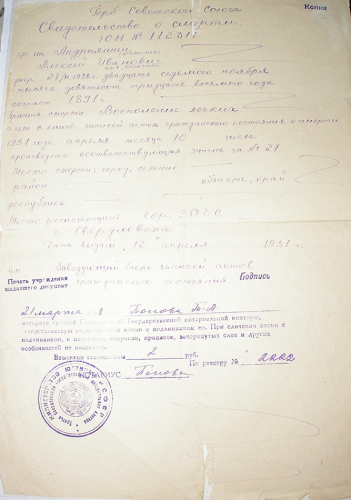 Копия
Герб Советского Союза
Свидетельство о смерти
ЮН № 11231
гр. Андрияшин
Алексей Иванович
умер 27/XI 1938г. двадцать седьмого ноября
тысяча девятьсот тридцать восьмого года
возраст 1891 г.
Причина смерти Воспаление легких
о чем в книге записей актов гражданского состояния о смерти
1951 года апреля месяца 10 числа
произведена соответствующая запись за № 21
Место смерти: город, селение
район область, край
республика
Место регистрации гор. ЗАГС
г. Свердловска
Дата выдачи "16" апреля 1951 г.
м.п. Заведующий бюро записей актов
Печать учреждения гражданского состояния Подпись
выдавшего документ
21 марта Попова
Государственной нотариальной конторы,
верность копии с подлинником ее. При сличении копии с
подлинником, в последнем поправок, приписок, зачеркнутых слов и других
особенностей не оказалось.
Взыскано госпошлины 2 руб. По реестру № 2002
НОТАРИУС Попова